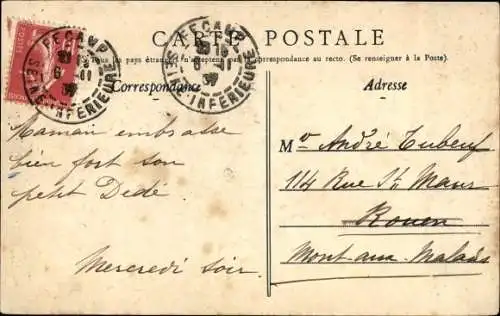 CARTE POSTALE
Tous les pays étrangers n'acceptent pas la correspondance au recto. (Se renseigner à la Poste).
FECAMP
SEINE-INFÉRIEURE
FECAMP
SEINE-INFÉRIEURE
Correspondance
Adresse
Maman embrasse
bien fort son
petit Dédé
Mercredi soir
Mr André Tubeuf
114 Rue St Maur
Rouen
Mont aux Malades